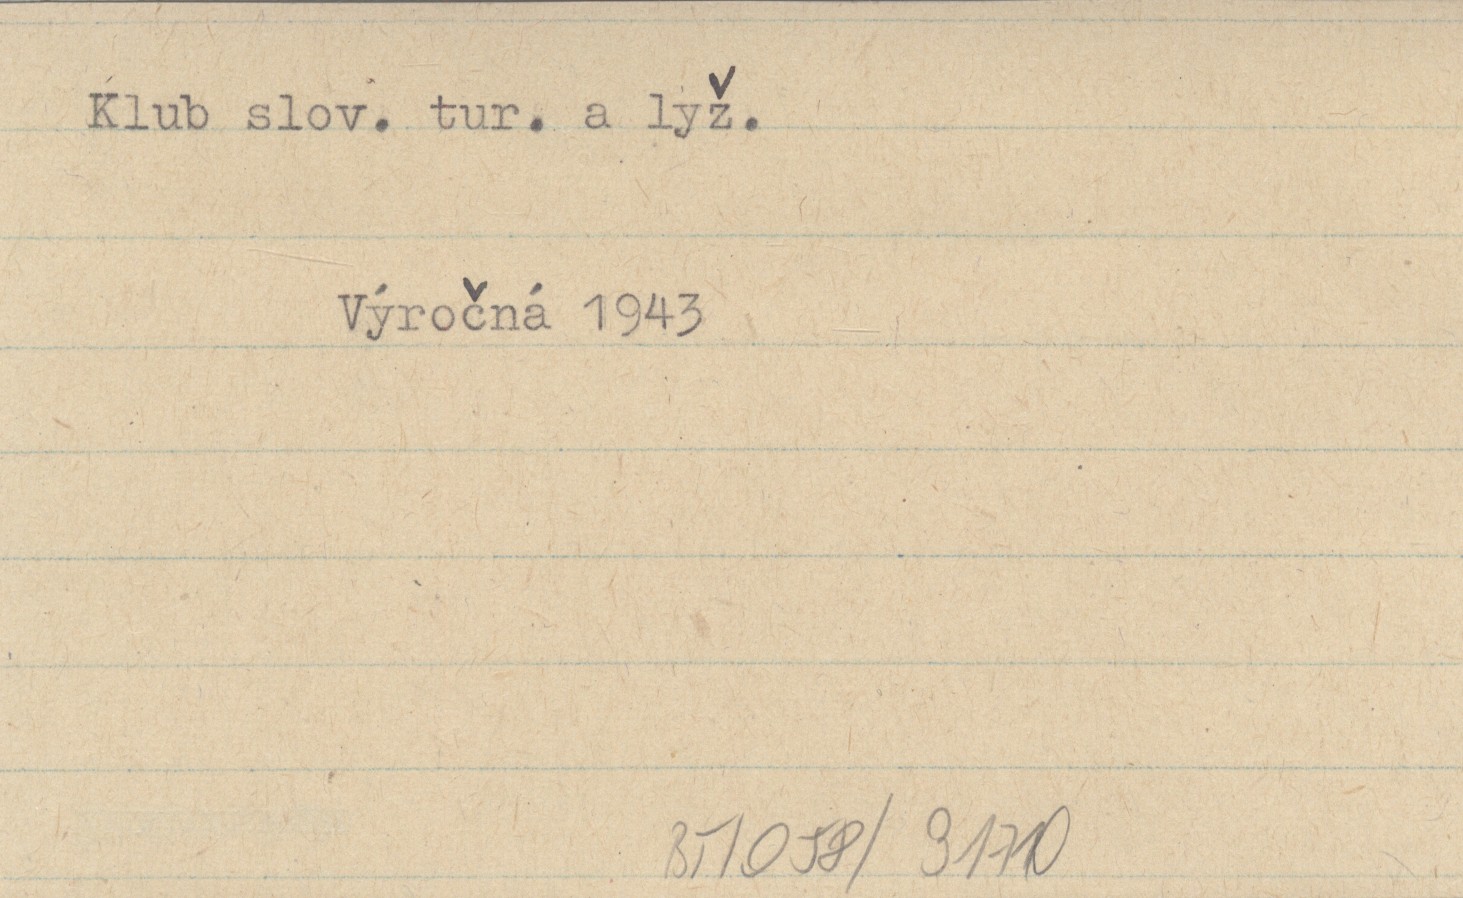 Klub slov. tur. a lyž.
Výročná 1943
BT1058/ 3170